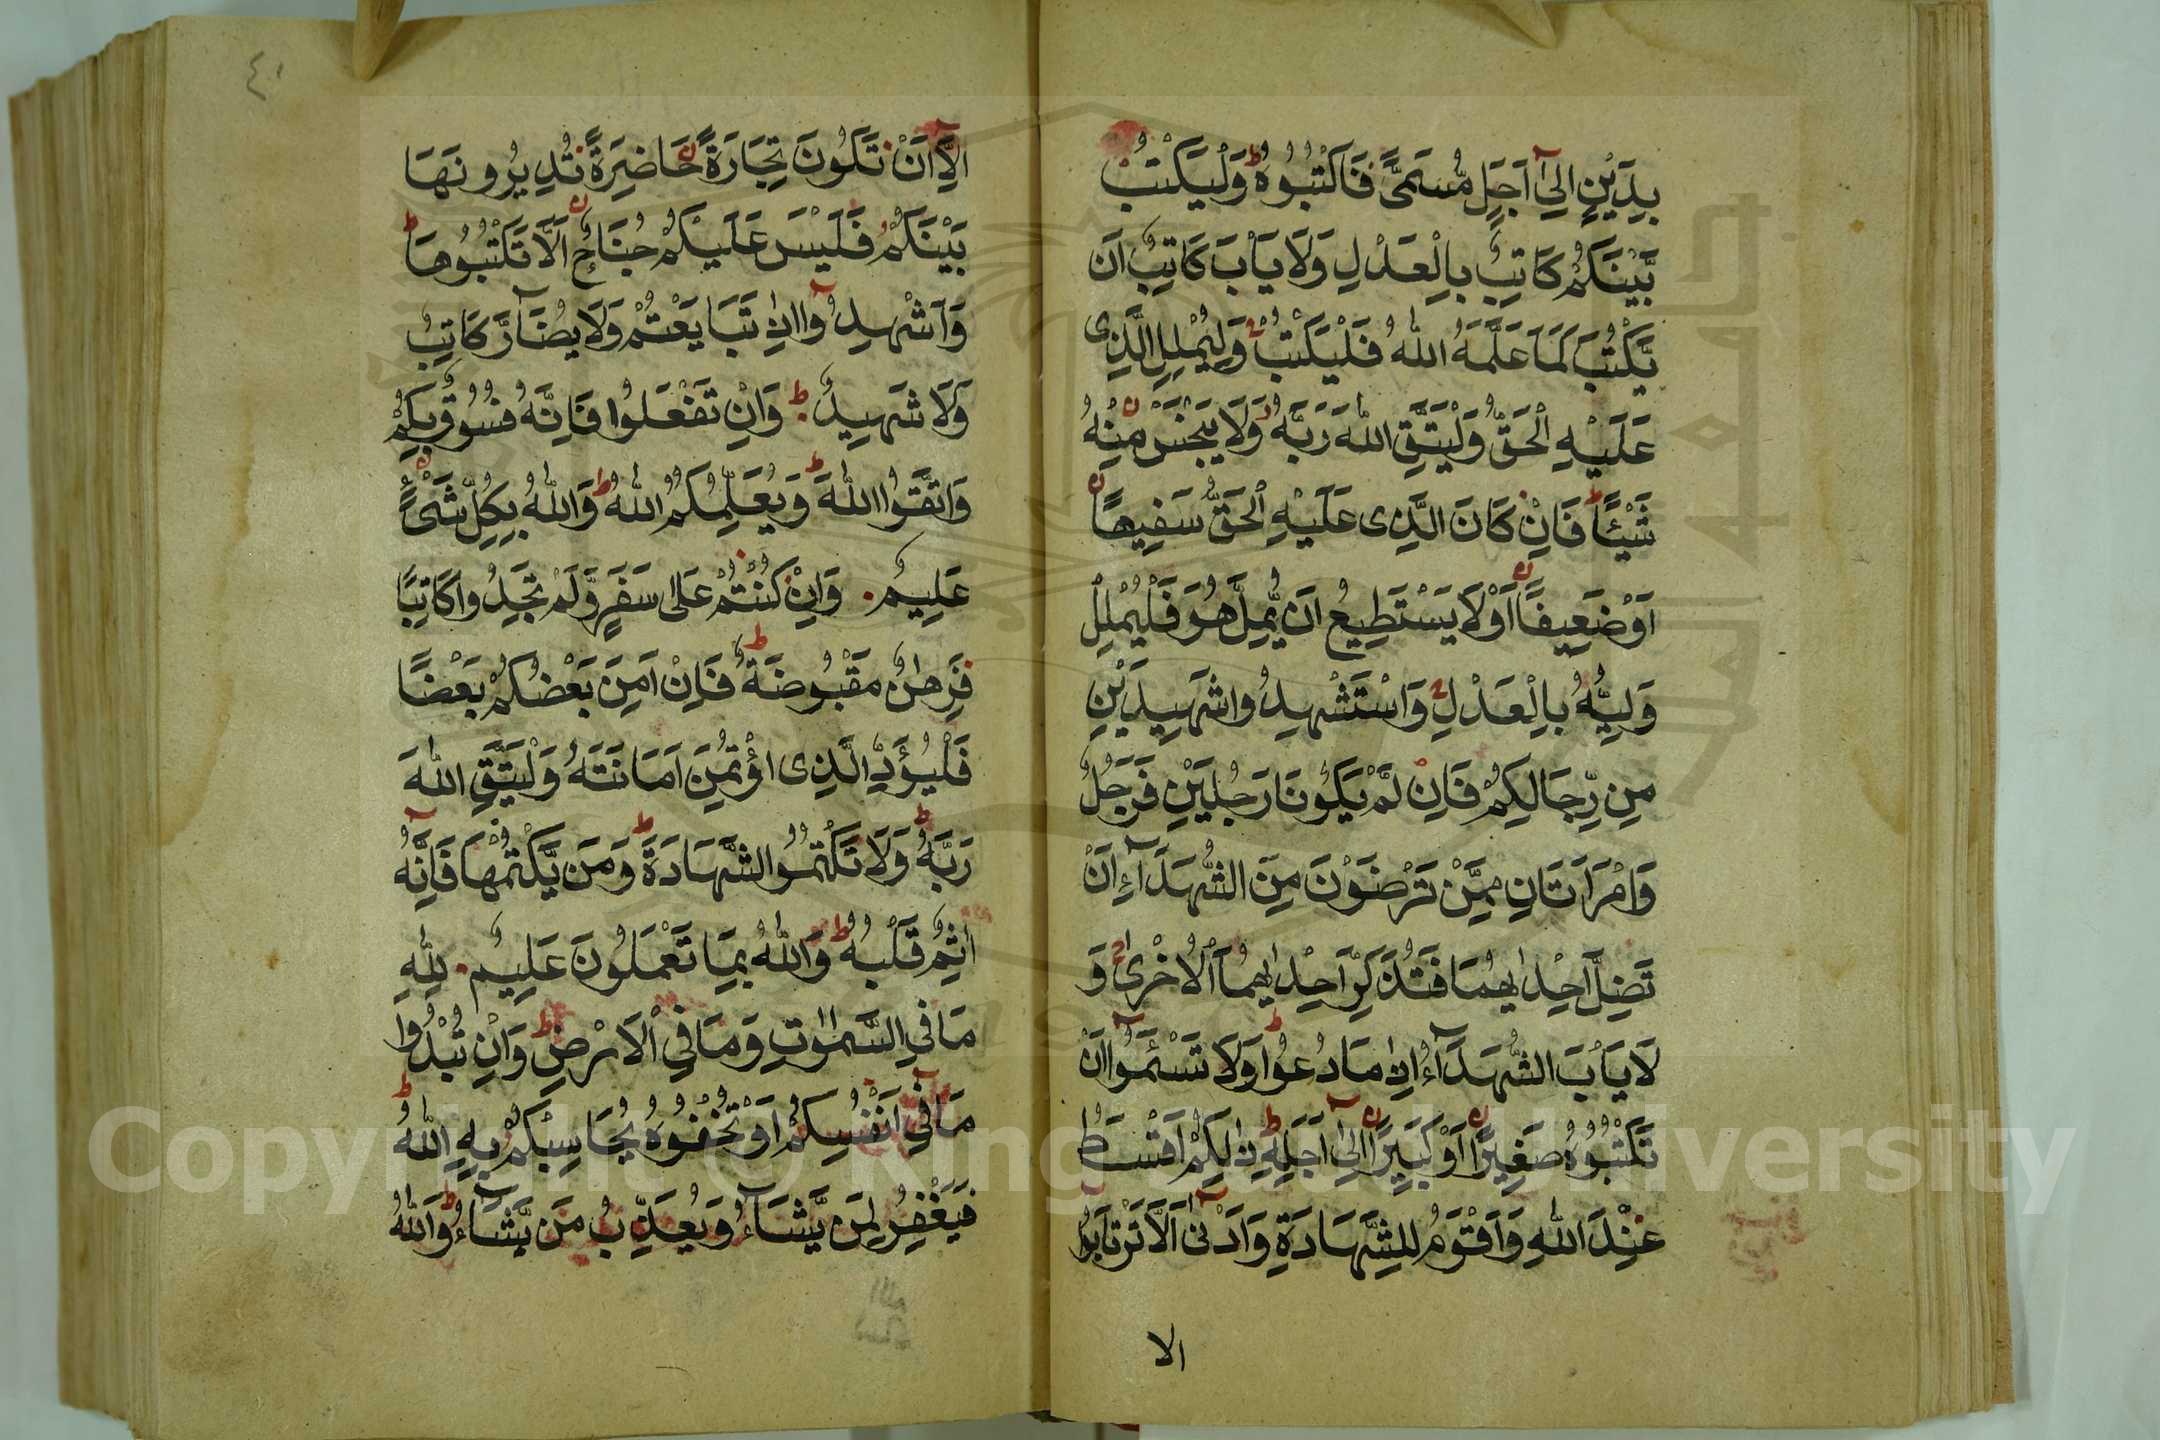 بِدَيْنٍ اِلٰٓى اَجَلٍ مُّسَمًّى فَاكْتُبُوْهُ ط وَلْيَكْتُبْ
بَّيْنَكُمْ كَاتِبٌ بِالْعَدْلِ وَلَا يَأْبَ كَاتِبٌ اَنْ
يَّكْتُبَ كَمَا عَلَّمَهُ اللّٰهُ فَلْيَكْتُبْ وَلْيُمْلِلِ الَّذِى
عَلَيْهِ الْحَقُّ وَلْيَتَّقِ اللّٰهَ رَبَّهُ وَلَا يَبْخَسْ مِنْهُ
شَيْـًٔا ط فَاِنْ كَانَ الَّذِى عَلَيْهِ الْحَقُّ سَفِيهًا
اَوْ ضَعِيفًا اَوْ لَا يَسْتَطِيعُ اَنْ يُّمِلَّ هُوَ فَلْيُمْلِلْ
وَلِيُّهُ بِالْعَدْلِ وَاسْتَشْهِدُوا شَهِيدَيْنِ
مِنْ رِّجَالِكُمْ فَاِنْ لَّمْ يَكُونَا رَجُلَيْنِ فَرَجُلٌ
وَامْرَاَتَانِ مِمَّنْ تَرْضَوْنَ مِنَ الشُّهَدَآءِ اَنْ
تَضِلَّ اِحْدٰىهُمَا فَتُذَكِّرَ اِحْدٰىهُمَا الْاُخْرٰى وَ
لَا يَأْبَ الشُّهَدَآءُ اِذَا مَا دُعُوْا ط وَلَا تَسْـَٔمُوْٓا اَنْ
تَكْتُبُوْهُ صَغِيرًا اَوْ كَبِيرًا اِلٰٓى اَجَلِهِ ط ذٰلِكُمْ اَقْسَطُ
عِنْدَ اللّٰهِ وَاَقْوَمُ لِلشَّهَادَةِ وَاَدْنٰٓى اَلَّا تَرْتَابُوْٓا
الا
٤٠
اِلَّآ اَنْ تَكُونَ تِجَارَةً حَاضِرَةً تُدِيرُونَهَا
بَيْنَكُمْ فَلَيْسَ عَلَيْكُمْ جُنَاحٌ اَلَّا تَكْتُبُوْهَا ط
وَاَشْهِدُوْٓا اِذَا تَبَايَعْتُمْ وَلَا يُضَآرَّ كَاتِبٌ
وَّلَا شَهِيدٌ ط وَاِنْ تَفْعَلُوا فَاِنَّهُ فُسُوْقٌ بِكُمْ
وَاتَّقُوا اللّٰهَ ط وَيُعَلِّمُكُمُ اللّٰهُ ط وَاللّٰهُ بِكُلِّ شَىْءٍ
عَلِيمٌ وَاِنْ كُنْتُمْ عَلٰى سَفَرٍ وَّلَمْ تَجِدُوا كَاتِبًا
فَرِهٰنٌ مَقْبُوضَةٌ ط فَاِنْ اَمِنَ بَعْضُكُمْ بَعْضًا
فَلْيُؤَدِّ الَّذِى اؤْتُمِنَ اَمَانَتَهُ وَلْيَتَّقِ اللّٰهَ
رَبَّهُ ط وَلَا تَكْتُمُوا الشَّهَادَةَ ط وَمَنْ يَّكْتُمْهَا فَاِنَّهُٓ
اٰثِمٌ قَلْبُهُ ط وَاللّٰهُ بِمَا تَعْمَلُونَ عَلِيمٌ لِلّٰهِ
مَا فِى السَّمٰوٰتِ وَمَا فِى الْاَرْضِ ط وَاِنْ تُبْدُوْا
مَا فِىٓ اَنْفُسِكُمْ اَوْ تُخْفُوْهُ يُحَاسِبْكُمْ بِهِ اللّٰهُ ط
فَيَغْفِرُ لِمَنْ يَّشَآءُ وَيُعَذِّبُ مَنْ يَّشَآءُ ط وَاللّٰهُ
Copyright © King Saud University